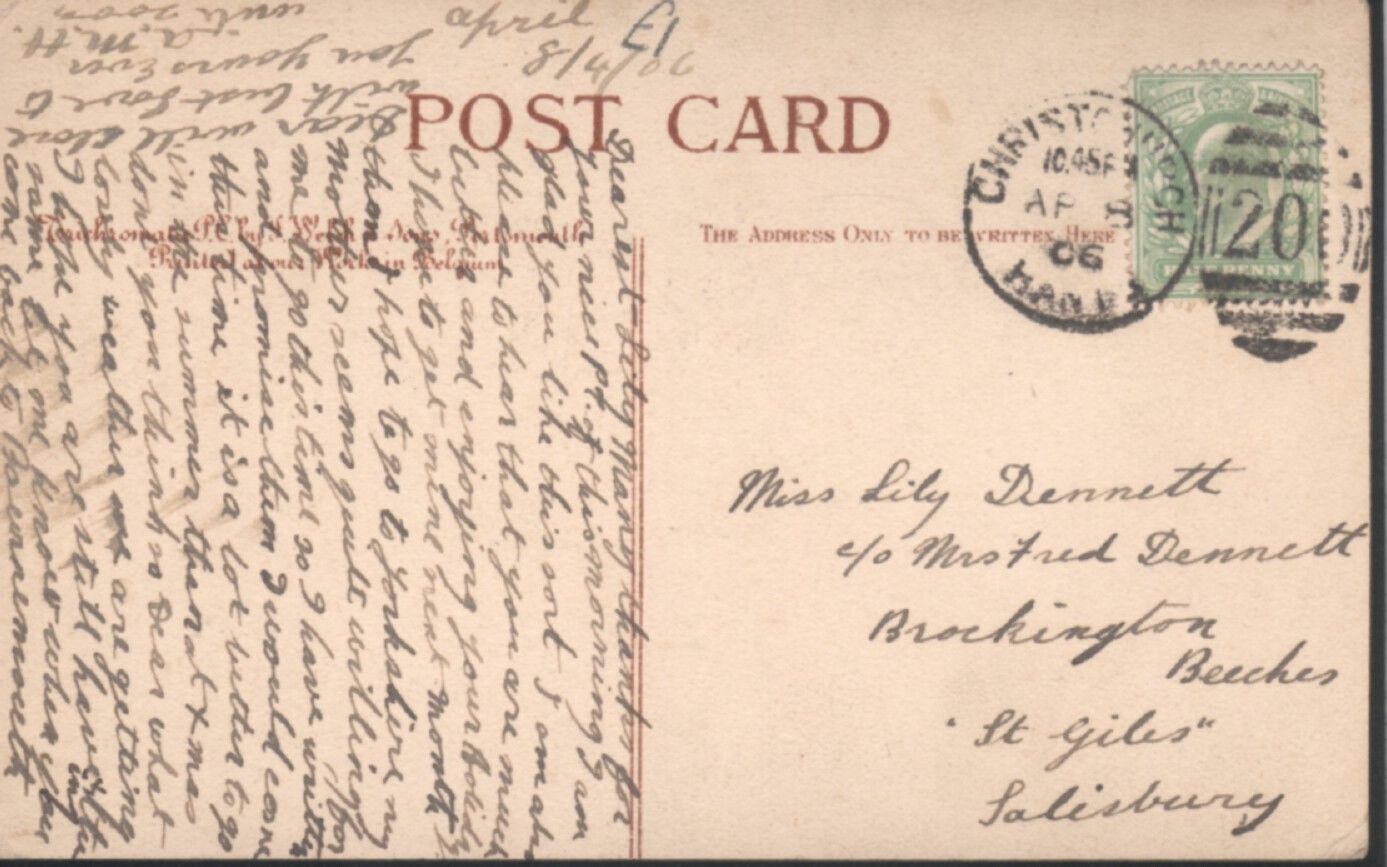 £1
april
8/4/06
POST CARD
THE ADDRESS ONLY TO BE WRITTEN HERE
CHRISTCHURCH
10.45 P
AP 8
06
HANTS
20
HALFPENNY
Miss Lily Dennett
c/o Mrs Fred Dennett
Brockington
Beeches
"St Giles"
Salisbury
P.C. by J. Welch & Sons, Portsmouth
Printed at our Works in Belgium
Dearest Lily Many thanks for
your nice p.c. of this morning I am
glad you like this sort I am also
please to hear that you are much
better and enjoying your holiday
I have to get mine next month
then I hope to go to Yorkshire my
Mother seems quite willing for
me to go this time so I have written
and promise them I would come
this time it is a lot better to go
in the summer than at Xmas
don't you think so Dear what
lovely weather are getting
I hope you are still having it fine
name let me know when you
come back to Bournemouth
Dear will close
with best love to
you yours Ever
A.M.H.
write soon